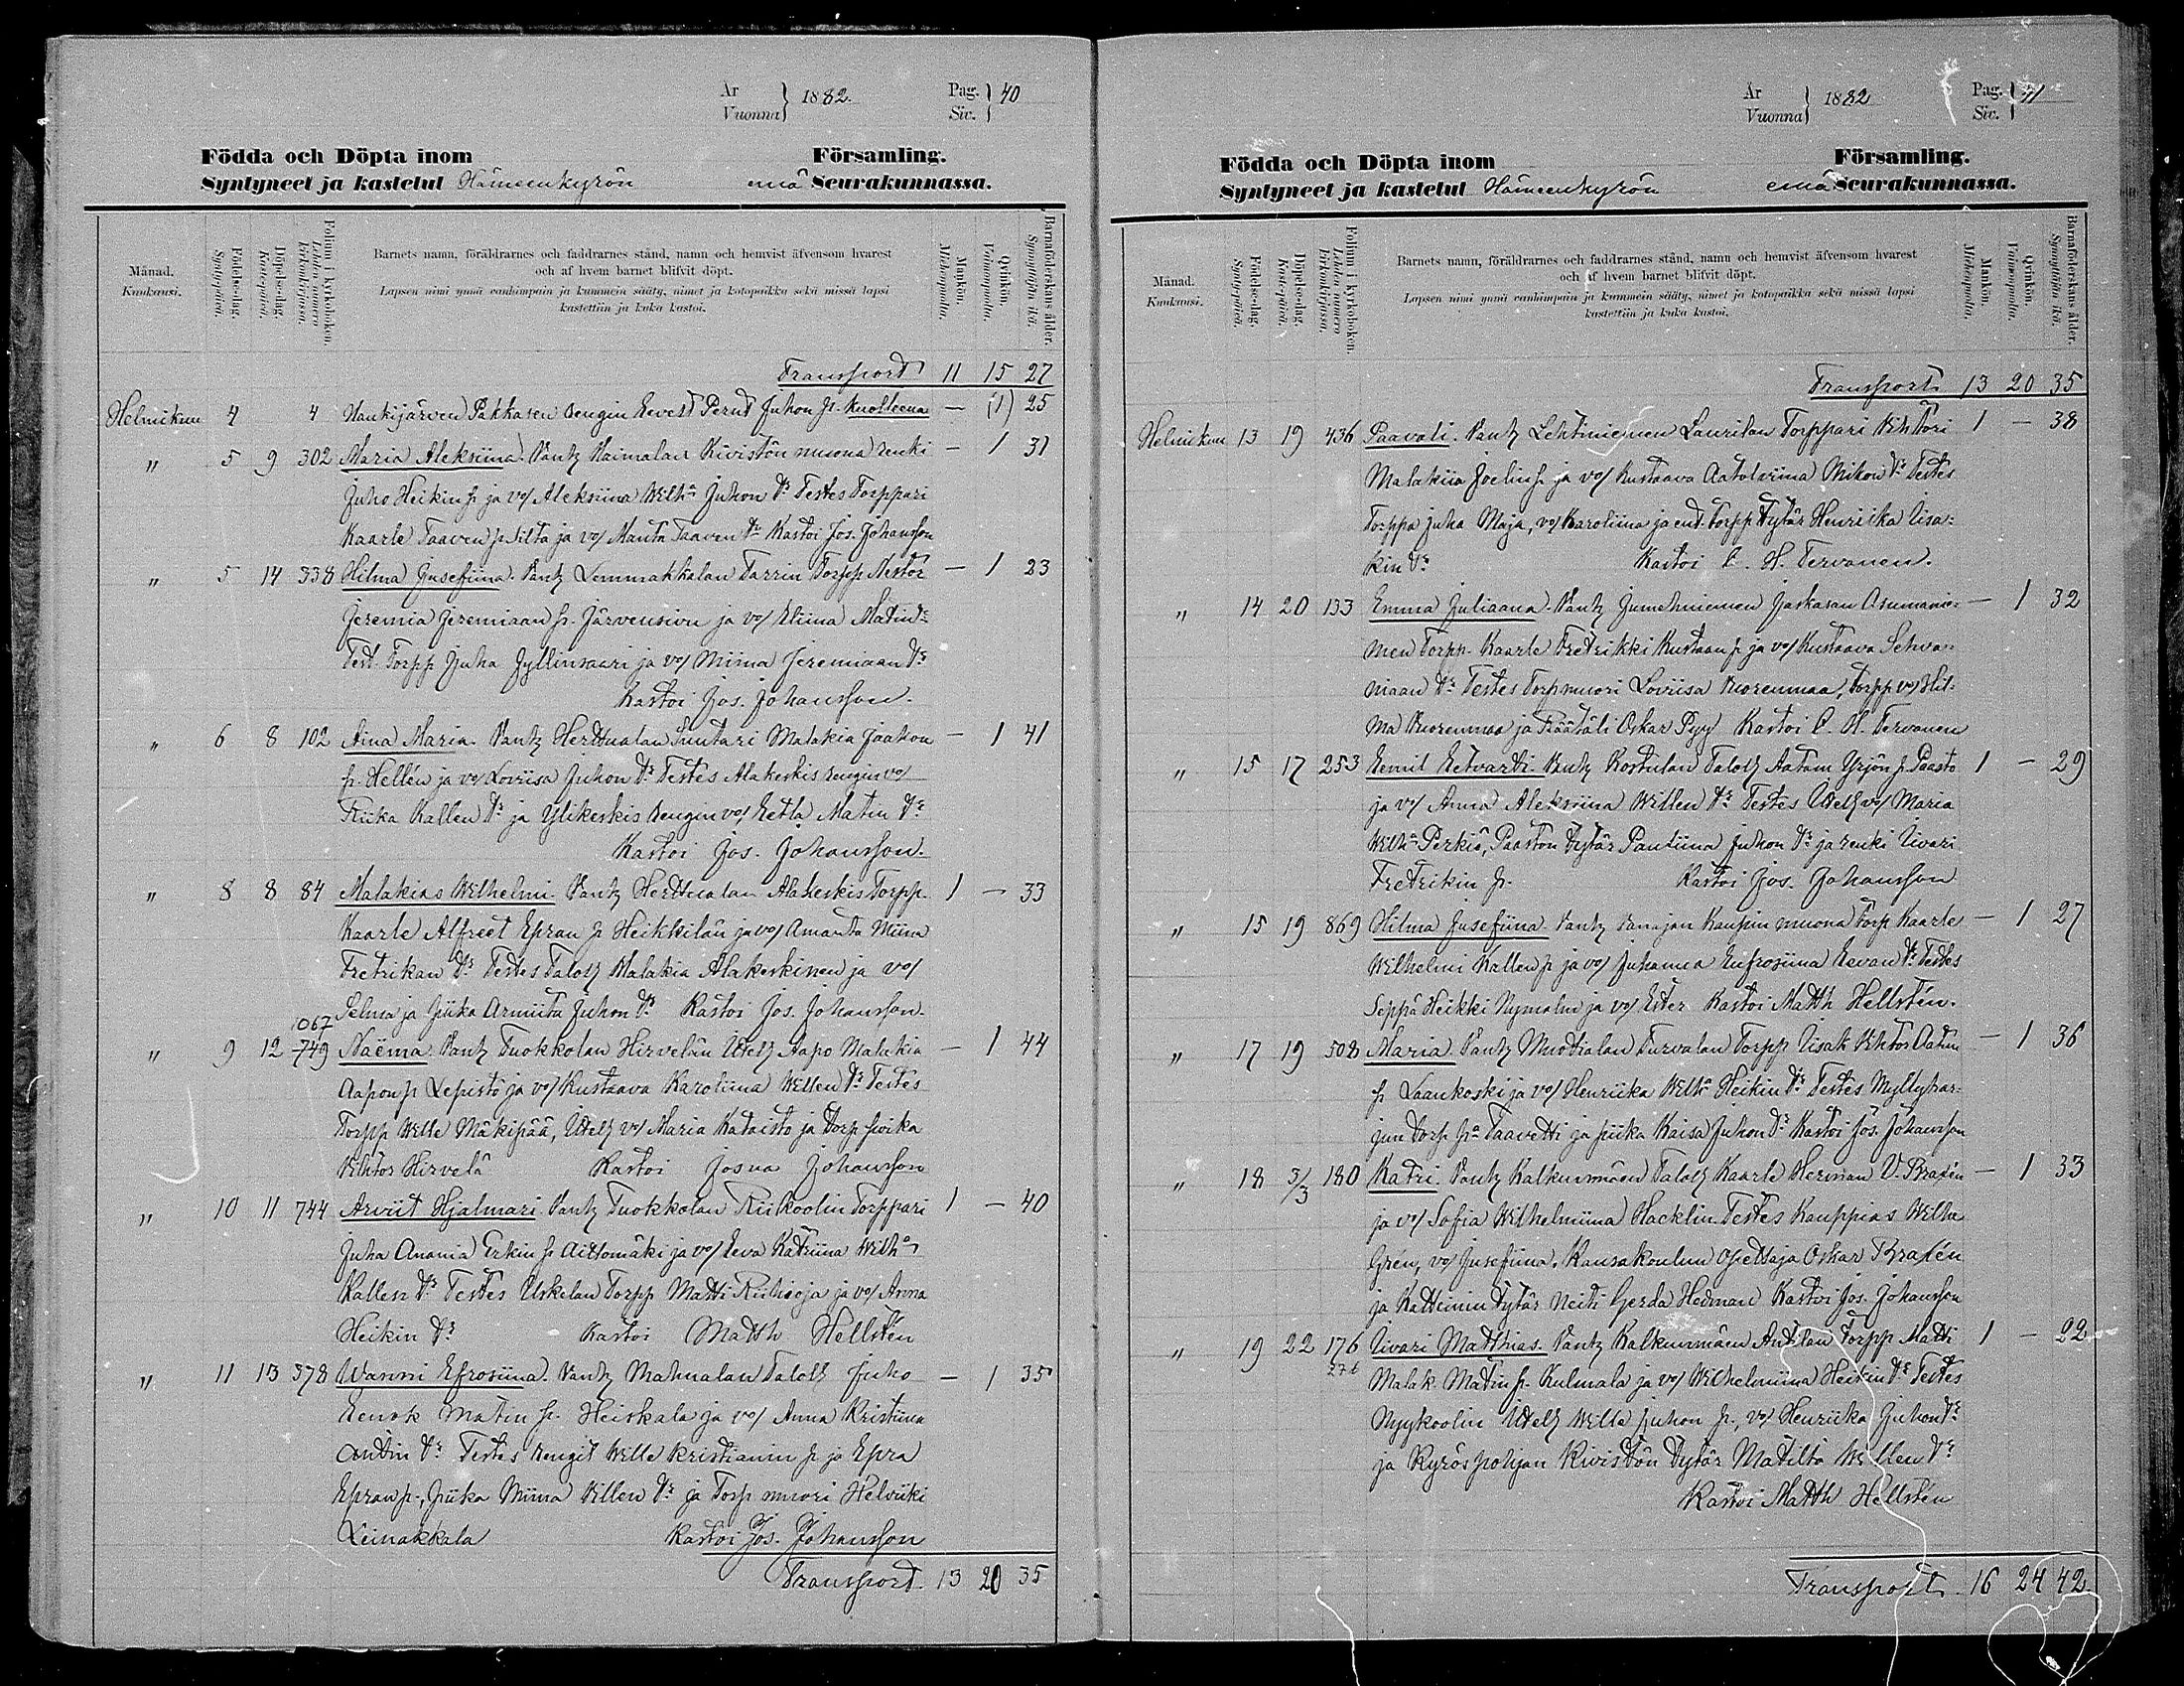 År
Vuonna } 1882.
Pag.
Siv. } 40
Födda och Döpta inom Församling.
Syntyneet ja kastetut Hämeenkyrön emä Seurakunnassa.
Månad.
Kuukausi.
Födelse-dag.
Syntypäivä.
Döpelse-dag.
Kastepäivä.
Folium i kyrkoboken.
Lehden numero
kirkonkirjassa.
Barnets namn, föräldrarnes och faddrarnes stånd, namn och hemvist äfvensom hvarest
och af hvem barnet blifvit döpt.
Lapsen nimi ynnä vanhimpain ja kummein sääty, nimet ja kotopaikka sekä missä lapsi
kastettiin ja kuka kastoi.
Mankön.
Miehenpuolia.
Qvinkön.
Vaimonpuolia.
Barnaföderskans ålder.
Synnyttäjän ikä.
Transport 11 15 27
Helmikuu 4 4 Hankijärven Pakkasen rengin Eevert Pernt Juhon p. kuolleena — (1) 25
" 5 9 302 Maria Aleksiina. Vanh Haimalan Kivistön muona renki — 1 31
Juho Heikin p. ja vo/ Aleksiina Wilhª Juhon tr Testes Torppari
Kaarle Taaven p. Silta ja vo/ Manta Taaven tr Kastoi Jos. Johansson
" 5 14 338 Hilma Jusefiina. Vanh Lemmakkalan Tarrin Torpp Nestor — 1 23
Jeremia Jeremiaan p. Järvensivu ja vo/ Eliina Matin tr
Test. Torpp Juha Jyllinsaari ja vo/ Miina Jeremiaan tr
Kastoi Jos. Johansson.
" 6 8 102 Aina Maria. Vanh Herttualan Suutari Malakia Jaakon — 1 41
p. Hellén ja vo/ Loviisa Juhon tr Testes Alakeskis rengin vo/
Riika Kallen tr ja Ylikeskis rengin vo/ Eetla Matin tr
Kastoi Jos. Johansson.
" 8 8 84 Malakias Wilhelmi. Vanh Herttualan Alakeskis Torpp. 1 — 33
Kaarle Alfreet Epran p Heikkilän ja vo/ Amanta Miina
Fretrikan tr Testes Talol Malakia Alakeskinen ja vo/
Selma ja piika Armiita Juhon tr Kastoi Jos. Johansson.
1067
" 9 12 749 Naëma. Vanh Tuokkolan Hirvelän Itell Aapo Malakia — 1 44
Aapon p Lepistö ja vo/ Kustaava Karoliina Willen tr Testes
Torpp Wille Mäkipää, Itell vo/ Maria Kataisto ja torp poika
Vihtor Hirvelä Kastoi Josua Johansson
" 10 11 744 Arviit Hjalmari. Vanh Tuokkolan Riikoolin Torppari 1 — 40
Juha Anania Erkin p. Aittomäki ja vo/ Eeva Katriina Wilhª
Kallen tr Testes Uskelan Torpp Matti Riihioja ja vo/ Anna
Heikin tr Kastoi Matth Hellstén
" 11 13 378 Wanni Efrosiina. Vanh Mahnalan Talol Juho — 1 35
Eenok Matin p. Heiskala ja vo/ Anna Kristiina
Antin tr Testes rengit Wille Kristianin p ja Epra
Epran p., piika Miina Villen tr ja Torp muori Helviiki
Leinakkala Kastoi Jos. Johansson
Transport. 13 20 35
År
Vuonna } 1882
Pag.
Siv. } 41
Födda och Döpta inom Församling.
Syntyneet ja kastetut Hämeenkyrön emä Seurakunnassa.
Månad.
Kuukausi.
Födelse-dag.
Syntypäivä.
Döpelse-dag.
Kastepäivä.
Folium i kyrkoboken.
Lehden numero
kirkonkirjassa.
Barnets namn, föräldrarnes och faddrarnes stånd, namn och hemvist äfvensom hvarest
och af hvem barnet blifvit döpt.
Lapsen nimi ynnä vanhimpain ja kummein sääty, nimet ja kotopaikka sekä missä lapsi
kastettiin ja kuka kastoi.
Mankön.
Miehenpuolia.
Qvinkön.
Vaimonpuolia.
Barnaföderskans ålder.
Synnyttäjän ikä.
Transport. 13 20 35
Helmikuu 13 19 436 Paavali. Vanh Lehtiniemen Laurilan Torppari Vihtori 1 — 38
Malakiia Joelin p. ja vo/ Kustaava Aatolviina Mikon tr Testes
Torppa Juha Maja, vo/ Karoliina ja ent. Torpp tytär Henriika Iisa-
kin tr Kastoi C. H. Tervonen.
" 14 20 133 Emma Juliaana. Vanh Jumehniemen Jaskaran Asumanie- — 1 32
men Torpp. Kaarle Fretrikki Kustaan p ja vo/ Kustaava Schva-
niaan tr Testes Torpmuori Loviisa Vuorenmaa, Torpp vo/ Hil-
ma Vuorenmaa ja Räätäli Oskar Pyy Kastoi C. H. Tervonen
" 15 17 253 Eemil Eetvarti. Vanh Kostulan Talol Aatam Yrjön p. Paasto 1 — 29
ja vo/ Anna Aleksiina Willen tr Testes Itell vo/ Maria
Wilhª Perkiö, Paaston tytär Pautiina Juhon tr ja renki Iivari
Fretrikin p. Kastoi Jos. Johansson
" 15 19 869 Hilma Jusefiina. Vanh Vanajan Kaupin muona Torp Kaarle — 1 27
Wilhelmi Kallen p ja vo/ Juhanna Eufrosiina Eevan tr Testes
Seppä Heikki Nymalm ja vo/ Ester Kastoi Matth Hellstén.
" 17 19 508 Maria. Vanh Muotialan Turvalan Torpp Iisak Vihtor Aatun — 1 36
p. Laankoski ja vo/ Henriika Wilhª Heikin tr Testes Myllyhar-
jun torp pª Taavetti ja piika Kaisa Juhon tr Kastoi Jos. Johansson
" 18 3/3 180 Katri. Vanh Kalkunmäen Talol Kaarle Herman V. Braxén — 1 33
ja vo/ Sofia Wilhelmiina Hacklin. Testes Kauppias Wilho
Gren, vo/ Jusefiina. Kansakoulun opettaja Oskar Braxén
ja Katteinin tytär Neiti Gerda Hedman Kastoi Jos. Johansson
" 19 22 176 Iivari Matthias. Vanh Kalkunmäen Anttilan Torpp Matti 1 — 22
276 Malak. Matin p. Kulmala ja vo/ Wilhelmiina Heikin tr Testes
Nyykoolin Itell Wille Juhon p., vo/ Henriika Juhon tr
ja Kyröspohjan Kivistön tytär Matilta Willen tr
Kastoi Matth Hellstén
Transport. 16 24 42